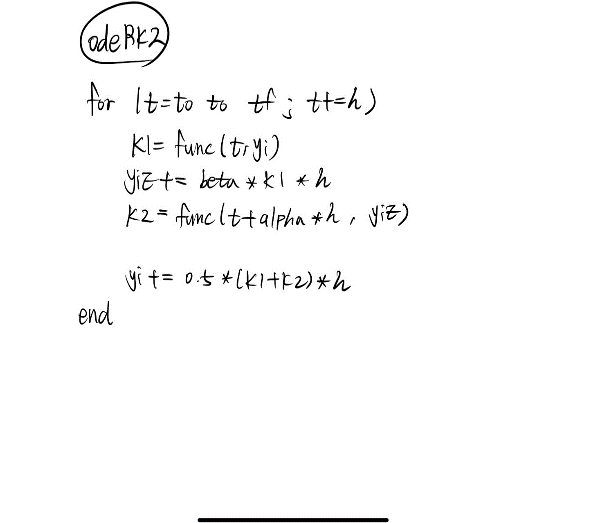 odeRK2
for (t=t0 to tf ; t+=h)
K1= func(t,yi)
yi2 += beta * K1 * h
K2 = func(t+alpha*h , yi2)
yi += 0.5 *(K1+K2)*h
end